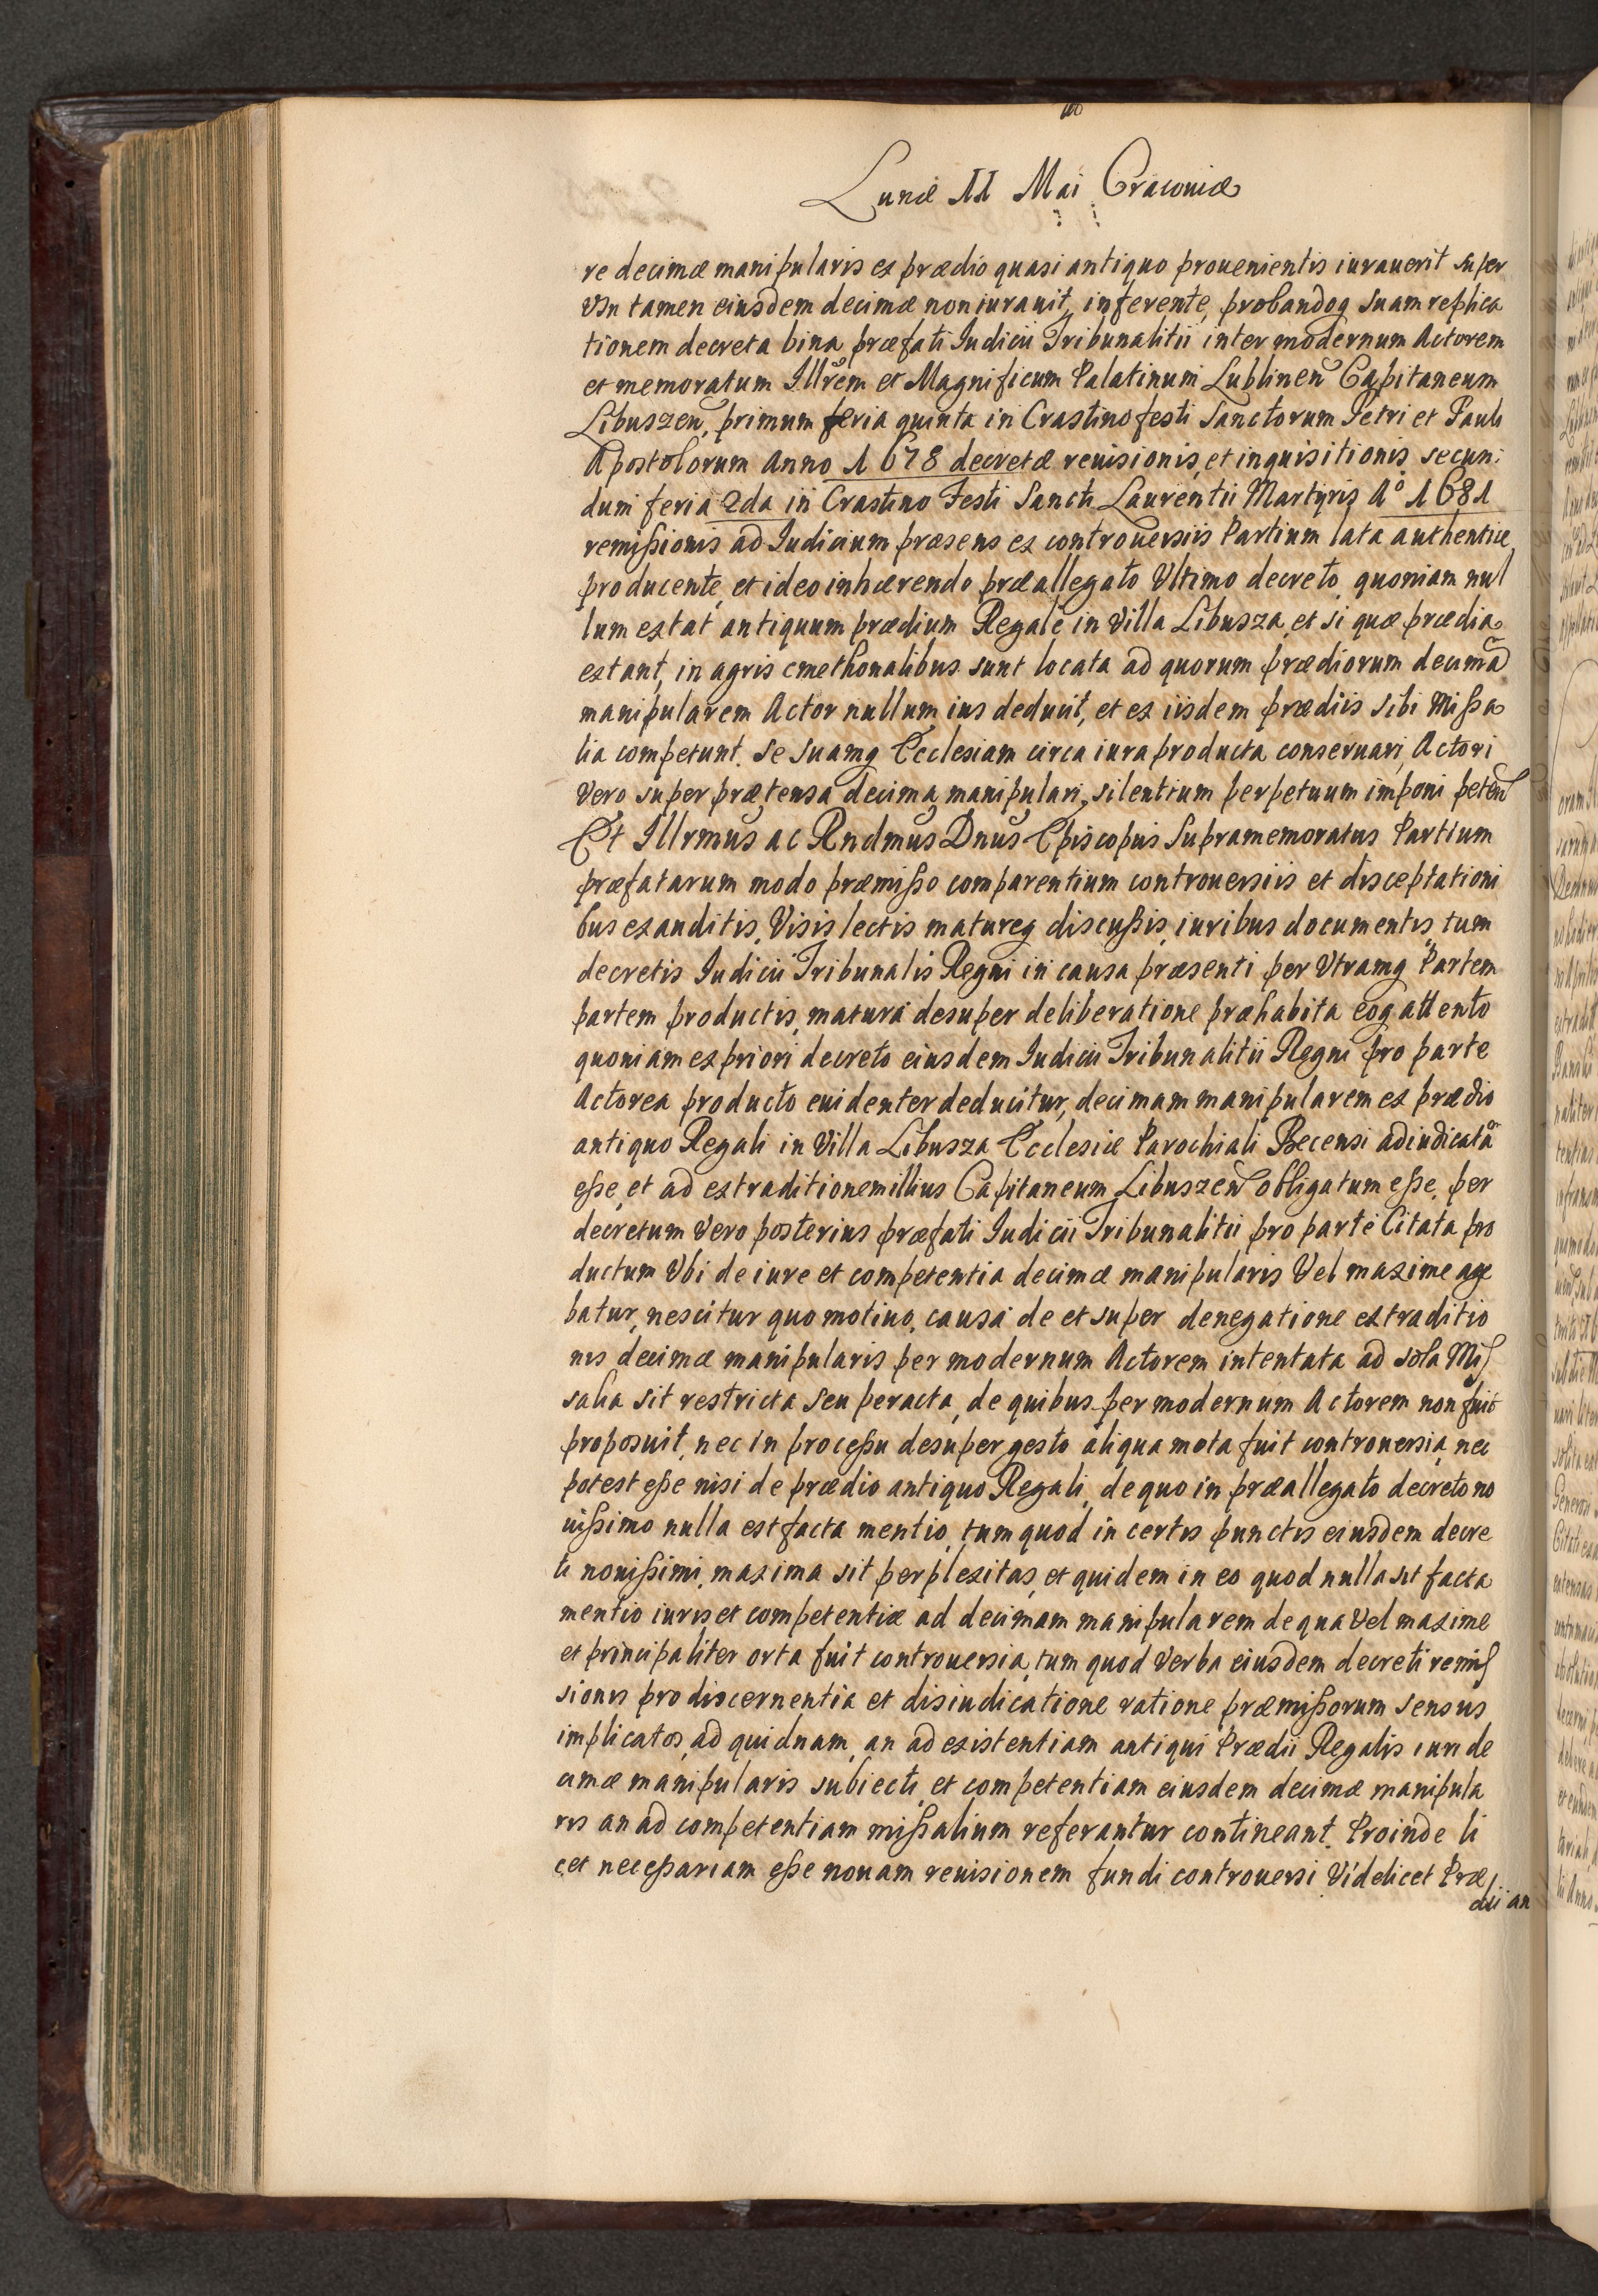 Lunæ 11 Mai Cracouiæ
re decimæ manipularis ex prædio quasi antiquo prouenientis iurauerit super
Vsu tamen eiusdem decimæ non iurauit, inferente, probandoq suam replica
tionem decreta bina præfati Iudicii Tribunalitii inter modernum Actorem
et memoratum Illrem et Magnificum Palatinum Lublinen Capitaneum
Libuszen, primum feria quinta in Crastino festi Sanctorum Petri et Pauli
Apostolorum Anno 1678 decretæ reuisionis, et inquisitionis, secun:
dum feria 2da in Crastino Festi Sancti Laurentii Martyris A° 1681
remißionis ad Iudicium præsens ex controuersiis Partium lata authentice
producente, et ideo inhærendo præallegato Vltimo decreto, quoniam nul
lum extat antiquum prædium Regale in Villa Libusza, et si quæ prædia
extant, in agris cmethonalibus sunt locata ad quorum prædiorum decimã
manipularem Actor nullum ius deducit, et ex iisdem prædiis sibi Mißa
lia competunt. Se suamq Ecclesiam circa iura producta conseruari, Actori
Vero super prætensa decima manipulari, silentium perpetuum imponi peten
Et Illrmus ac Rndmus Dnus Episcopus Supramemoratus Partium
præfatarum modo præmißo comparentium controuersiis et disceptationi
bus exauditis, Visis lectis matureq discußis, iuribus documentis, tum
decretis Iudicii Tribunalis Regni in causa præsenti per Vtramq Partem
partem productis, matura desuper deliberatione præhabita eoq attento
quoniam ex priori decreto eiusdem Iudicii Tribunalitii Regni pro parte
Actorea producto euidenter deducitur, decimam manipularem ex prædio
antiquo Regali in Villa Libusza Ecclesiæ Parochiali Becensi adiudicatã
eße, et ad extraditionem illius Capitaneum Libuszen obligatum eße, per
decretum Vero posterius præfati Iudicii Tribunalitii pro parte Citata pro
ductum Vbi de iure et competentia decimæ manipularis Vel maxime age
batur, nescitur quo motiuo, causa de et super denegatione extraditio
nis decimæ manipularis per modernum Actorem intentata ad sola Mis
salia sit restricta seu peracta, de quibus per modernum Actorem non fuit
propositit, nec in proceßu desuper gesto aliqua mota fuit controuersia, nec
potest eße nisi de prædio antiquo Regali, de quo in præallegato decreto no
uißimo nulla est facta mentio, tum quod in certis punctis eiusdem decre
ti nouißimi, maxima sit perplexitas, et quidem in eo quod nulla sit facta
mentio iuris et competentiæ ad decimam manipularem de qua Vel maxime
et principaliter orta fuit controuersia, tum quod Verba eiusdem decreti remis
sionis pro discernentia et disiudicatione ratione præmißorum sensus
implicatos, ad quidnam, an ad existentiam antiqui Prædii Regalis iuri de
cimæ manipularis subiecti, et competentiam eiusdem decimæ manipula
ris an ad competentiam mißalium referantur contineant. Proinde li
cet neceßariam eße nouam reuisionem fundi controuersi Videlicet Præ
dii an